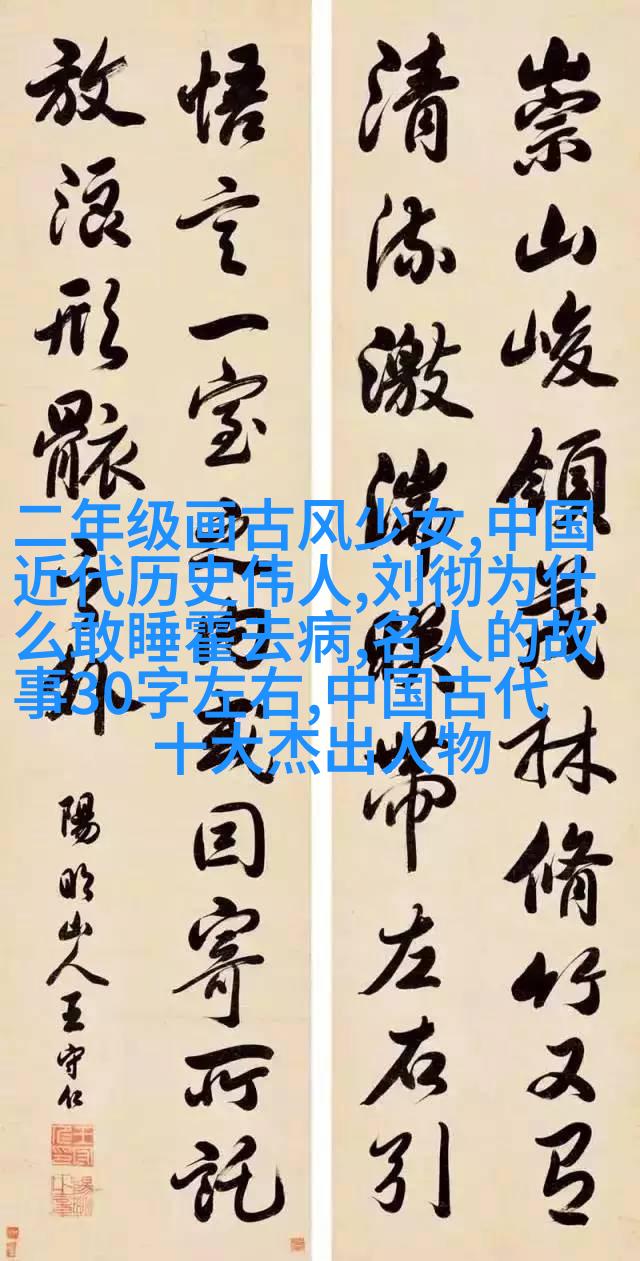 崇山峻領茂林脩竹又有
清流激湍暎帶左右引
悟言一室之內或因寄所託
放浪形骸之外
陽明山人王守仁
二年级画古风少女,中国
近代历史伟人,刘彻为什
么敢睡霍去病,名人的故
事30字左右,中国古代
十大杰出人物